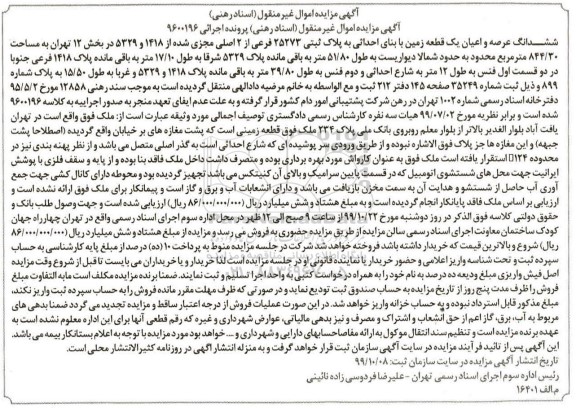 آگهی مزایده اموال غیر منقول (اسناد رهنی)
آگهی مزایده اموال غیر منقول (اسناد رهنی) پرونده اجرائی ۹۶۰۰۱۹۶
ششدانگ عرصه و اعیان یک قطعه زمین با بنای احداثی به پلاک ثبتی ۲۵۲۷۳ فرعی از ۲ اصلی مجزی شده از ۱۴۱۸ و ۵۳۲۹ در بخش ۱۲ تهران به مساحت
۸۴۴/۳۰ مترمربع محدود به حدود شمالا دیواریست به طول ۵۱/۸۰ به باقی مانده پلاک ۵۳۲۹ شرقا به طول ۱۷/۱۰ متر به باقی مانده پلاک ۱۴۱۸ فرعی جنوبا
در دو قسمت اول فنس به طول ۱۲ متر به شارع احداثی و دوم فنس به طول ۳۹/۸۰ متر به باقی مانده پلاک ۱۴۱۸ و ۵۳۲۹ و غربا به طول ۱۵/۵۰ به پلاک شماره
۸۹۹ و ذیل ثبت شماره ۳۵۲۴۹ صفحه ۱۴۵ دفتر ۲۱۲ ثبت و مع الواسطه به خانم مرضیه دادالهی منتقل گردیده است به موجب سند رهنی ۱۲۸۵۸ مورخ ۹۵/۵/۲
دفترخانه اسناد رسمی شماره ۱۰۰۲ تهران در رهن شرکت پشتیبانی امور دام کشور قرار گرفته و به علت عدم ایفای تعهد منجر به صدور اجراییه به کلاسه ۹۶۰۰۱۹۶
شده است و برابر نظریه مورخ ۹۹/۰۷/۰۲ هیات سه نفره کارشناس رسمی دادگستری توصیف اجمالی مورد وثیقه عبارت است از: ملک فوق واقع است در تهران
یافت آباد بلوار الغدیر بالاتر از بلوار معلم روبروی بانک ملی پلاک ۲۳۴ ملک فوق قطعه زمینی است که پشت مغازه های بر خیابان واقع گردیده (اصطلاحا پشت
جبهه) و این مغازه ها جز پلاک فوق الاشاره نبوده و از طریق ورودی سر پوشیده ای که شارع احداثی است به گذر اصلی متصل می باشد و از نظر پهنه بندی نیز در
استقرار یافته است ملک فوق به عنوان کارواش مورد بهره برداری بوده و متصرف داشت داخل ملک فاقد بنا بوده و از پایه و سقف فلزی با پوشش
ایرانیت جهت محل های شستشوی اتومبیل که در قسمت پایین سرامیک و بالای آن کنیتکس می باشد تجهیز گردیده بود و محوطه دارای کانال کشی جهت جمع
آوری آب حاصل از شستشو و هدایت آن به سمت مخزن بازیافت می باشد و دارای انشعابات آب و برق و گاز است و پیمانکار برای ملک فوق ارائه نشده است و
ارزیابی بر اساس ملک فاقد پایانکار انجام گردیده است و به مبلغ هشتاد و شش میلیارد ریال (۸۶/۰۰۰/۰۰۰/۰۰۰ ریال) ارزیابی شده است و جهت وصول طلب بانک و
حقوق دولتی کلاسه فوق الذکر در روز دوشنبه مورخ ۹۹/۱۰/۲۲ از ساعت ۹ صبح الی ۱۲ ظهر در محل اداره سوم اجرای اسناد رسمی واقع در تهران چهارراه جهان
کودک ساختمان معاونت اجرای اسناد رسمی سالن مزایده از طریق مزایده حضوری به فروش می رسد و مزایده از مبلغ هشتاد و شش میلیارد ریال (۸۶/۰۰۰/۰۰۰/۰۰۰
ریال) شروع و بالاترین قیمت که خریدار داشته باشد فروخته خواهد شد شرکت در جلسه مزایده منوط به پرداخت ۱۰ (ده) درصد از مبلغ پایه کارشناسی به حساب
سپرده ثبت و تحت شناسه واریز اعلامی و حضور خریدار یا نماینده قانونی او در جلسه مزایده است لذا خریدار و یا خریداران می بایست تا قبل از شروع وقت مزایده
اصل فیش واریزی مبلغ ودیعه ده درصد به نام خود را به همراه درخواست کتبی به واحد اجرا تسلیم و ثبت نمایند. ضمنا برنده مزایده مکلف است مابه التفاوت مبلغ
فروش را ظرف مدت پنج روز از تاریخ مزایده به حساب صندوق ثبت تودیع نماید و در صورتی که ظرف مهلت مقرر مانده فروش را به حساب سپرده ثبت واریز نکند،
مبلغ مذکور قابل استرداد نبوده و به حساب خزانه واریز خواهد شد. در این صورت عملیات فروش از درجه اعتبار ساقط و مزایده تجدید می گردد ضمنا بدهی های
مربوط به آب، برق، گاز اعم از حق انشعاب و اشتراک و مصرف و نیز بدهی مالیاتی، عوارض شهرداری و غیره که رقم قطعی آنها برای این اداره معلوم نشده است به
عهده برنده مزایده است و تنظیم سند انتقال موکول به ارائه مفاصاحسابهای دارایی و شهرداری و .... خواهد بود مورد مزایده با توجه به اعلام بستانکار بیمه می باشد.
این آگهی پس از تائید فرآیند مزایده در سایت آگهی سازمان ثبت قرار خواهد گرفت و به منزله انتشار آگهی در روزنامه کثیرالانتشار محلی است.
تاریخ انتشار آگهی مزایده در سایت سازمان ثبت: ۹۹/۱۰/۰۸
رئیس اداره سوم اجرای اسناد رسمی تهران - علیرضا فردوسی زاده نائینی
م.الف ۱۶۴۰۱